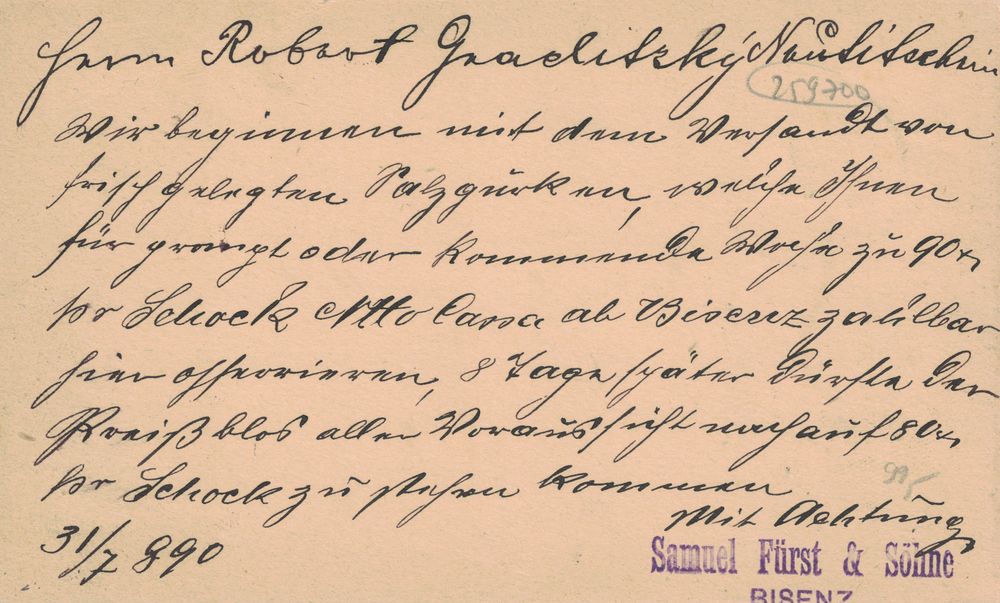 Herrn Robert Graditzky Neutitschein
259700
Wir beginnen mit dem Versandt von
frisch gelegten Salzgurken, welche Ihnen
für prompt oder kommende Woche zu 90 x
pr Schock Netto Cassa ab Bisenz zahlbar
hier offerrieren, 8 Tage später dürfte der
Preiß blos aller Voraussicht nach auf 80 x,
pr Schock zu stehen kommen
Mit Achtung
31/7 890
Samuel Fürst & Söhne
BISENZ